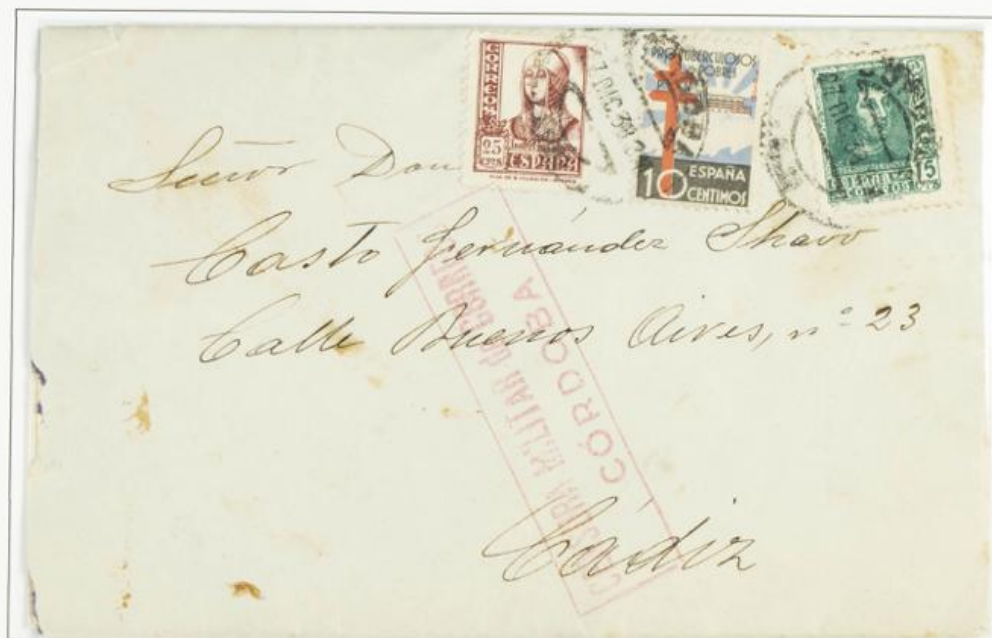 CORREOS
25
CTMS
ESPAÑA
PRO TUBERCULOSOS
POBRES
ESPAÑA
10 CENTIMOS
15
DIC 38
Señor Don
Casto Fernández Shaw
Calle Buenos Aires, nº 23
Cádiz
CENSURA MILITAR
CÓRDOBA